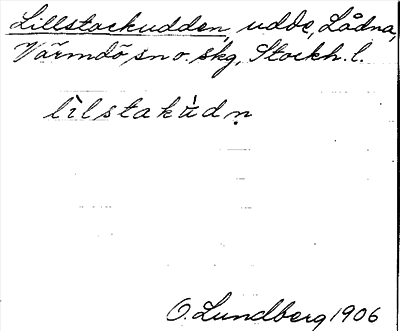 Lillstackudden, udde, Lådna,
Värmdö sn o. skg, Stockh. l.
lìlstakùdṇ
O. Lundberg 1906